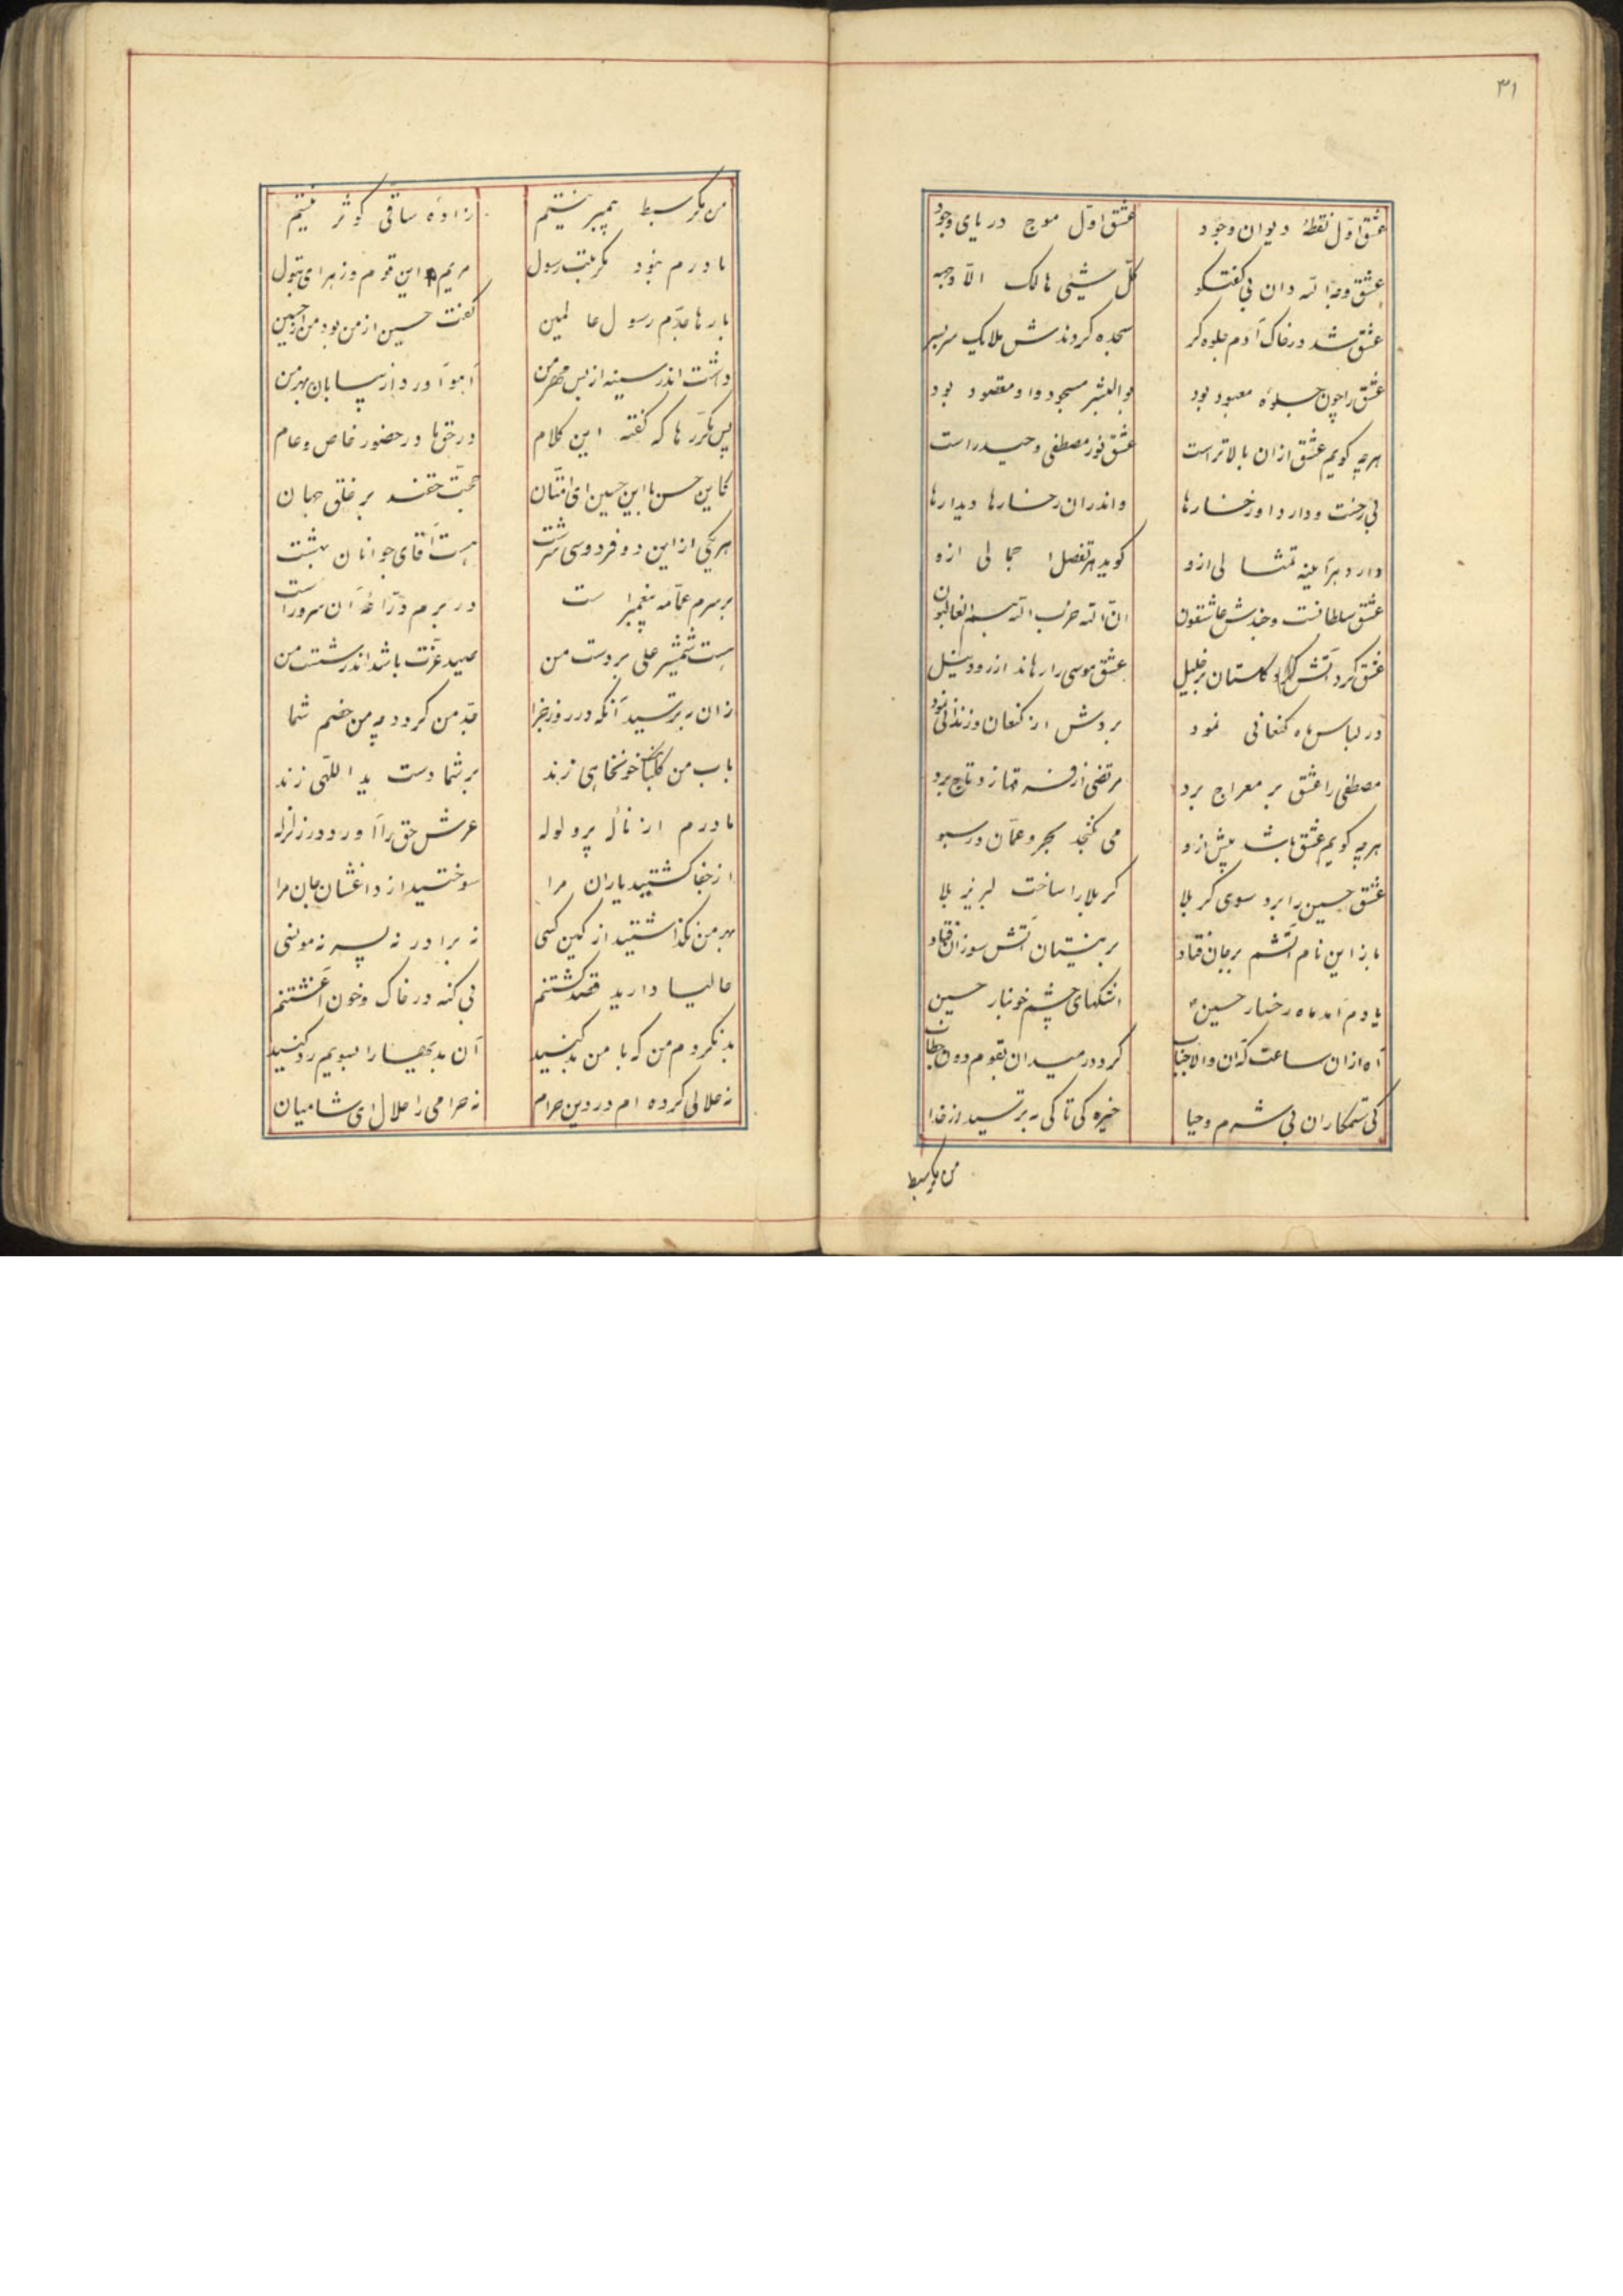 ۳۱
عشق اوّل نقطهٔ دیوان وجود عشق اوّل موج دریای وجود
عشق وجه الله دان بی گفتگو کلّ شیئی هالک الّا وجهه
عشق شد در خاک آدم جلوه کر سجده کردندش ملایک سربسر
عشق را چون جلوهٔ معبود بود بوالبشر مسجود و او مقصود بود
هرچه کویم عشق ازان بالاتر است عشق نور مصطفی و حیدر است
بی رخست و دارد او رخسارها واندران رخسارها دیدارها
دارد هر آیینه تمثالی ازو کوید هر تفصل اجمالی ازه
عشق سلطانست و جندش عاشقون انّ الله حزب الله هم الغالبون
عشق کرد آتش گلستان بر خلیل عشق موسی را رهاند از رود نیل
در لباس ماه کنعانی نمود بردش از کنعان و زندانی نمود
مصطفی را عشق بر معراج برد مرتضی از فرقها زو تاج برد
هرچه کویم عشق باشد بیش ازو می نکنجد بحر و عمّان در سبو
عشق حسین را برد سوی کربلا کربلا را ساخت لبریز بلا
باز این نام آتشم بر جان فتاد بر نیستان آتش سوزان فتاد
یادم آمد ماه رخسار حسین اشکهای چشم خونبار حسین
آه ازان ساعت که آن والاجناب کرد در میدان بقوم دون خطاب
کی ستمکاران بی شرم و حیا خیره کی تا کی نه ترسید از خدا
من مکر سبط
من مکر سبط پیمبر نیستم زادهٔ ساقی کوثر نیستم
مادرم نبود مکر بنت رسول مریم این قوم و زهرای بتول
بارها جدّم رسول عالمین کفت حسین از من بود من از حسین
داشت اندر سینه از بس مهر من آهو آورد از بیابان بهر من
پس مکرّرها که گفته این کلام در حق ما در حضور خاص و عام
کاین حسن با این حسین ای امّتان حجّت حقند بر خلق جهان
هر یکی از این دو فردوسی سرشت هست آقای جوانان بهشت
بر سرم عمّامه پیغمبر است در برم درّاعهٔ آن سرور است
هست شمشیر علی بر دست من صید عزّت باشد اندر شست من
زان نه ترسید آنکه در روز جزا جدّ من کردد چه من خصم شما
باب من کلبانک خونخاهی زند بر شما دست ید اللّهی زند
مادرم از نالهٔ پر ولوله عرش حق را آورد در زلزله
از جفا کشتید یاران مرا سوختید از داغشان جان مرا
بهر من نگذاشتید از کین کسی نه برادر نه پسر نه مونسی
حالیا دارید قصد کشتنم بی کنه در خاک و خون آغشتنم
بد نکردم من که با من بد کنید آن بدیها را بسویم رد کنید
نه حلالی کرده ام در دین حرام نه حرامی را حلال ای شامیان